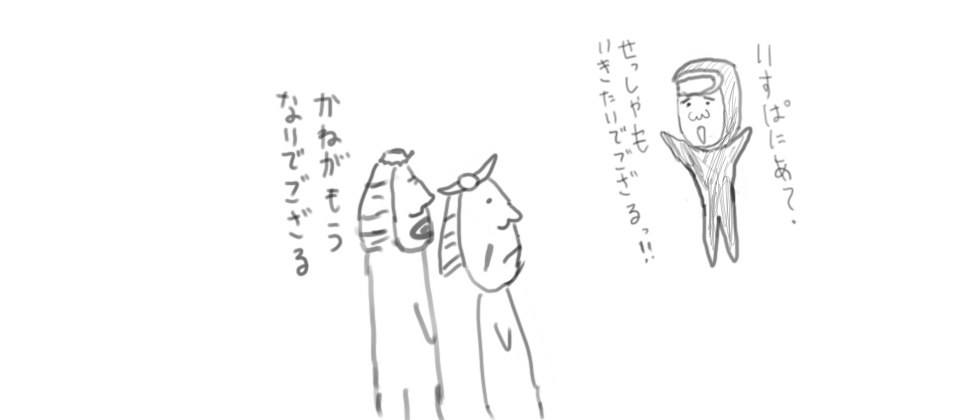 いすぱにあて。
せっしゃも
いきたいでござるっ!!
かねがもう
ないでござる